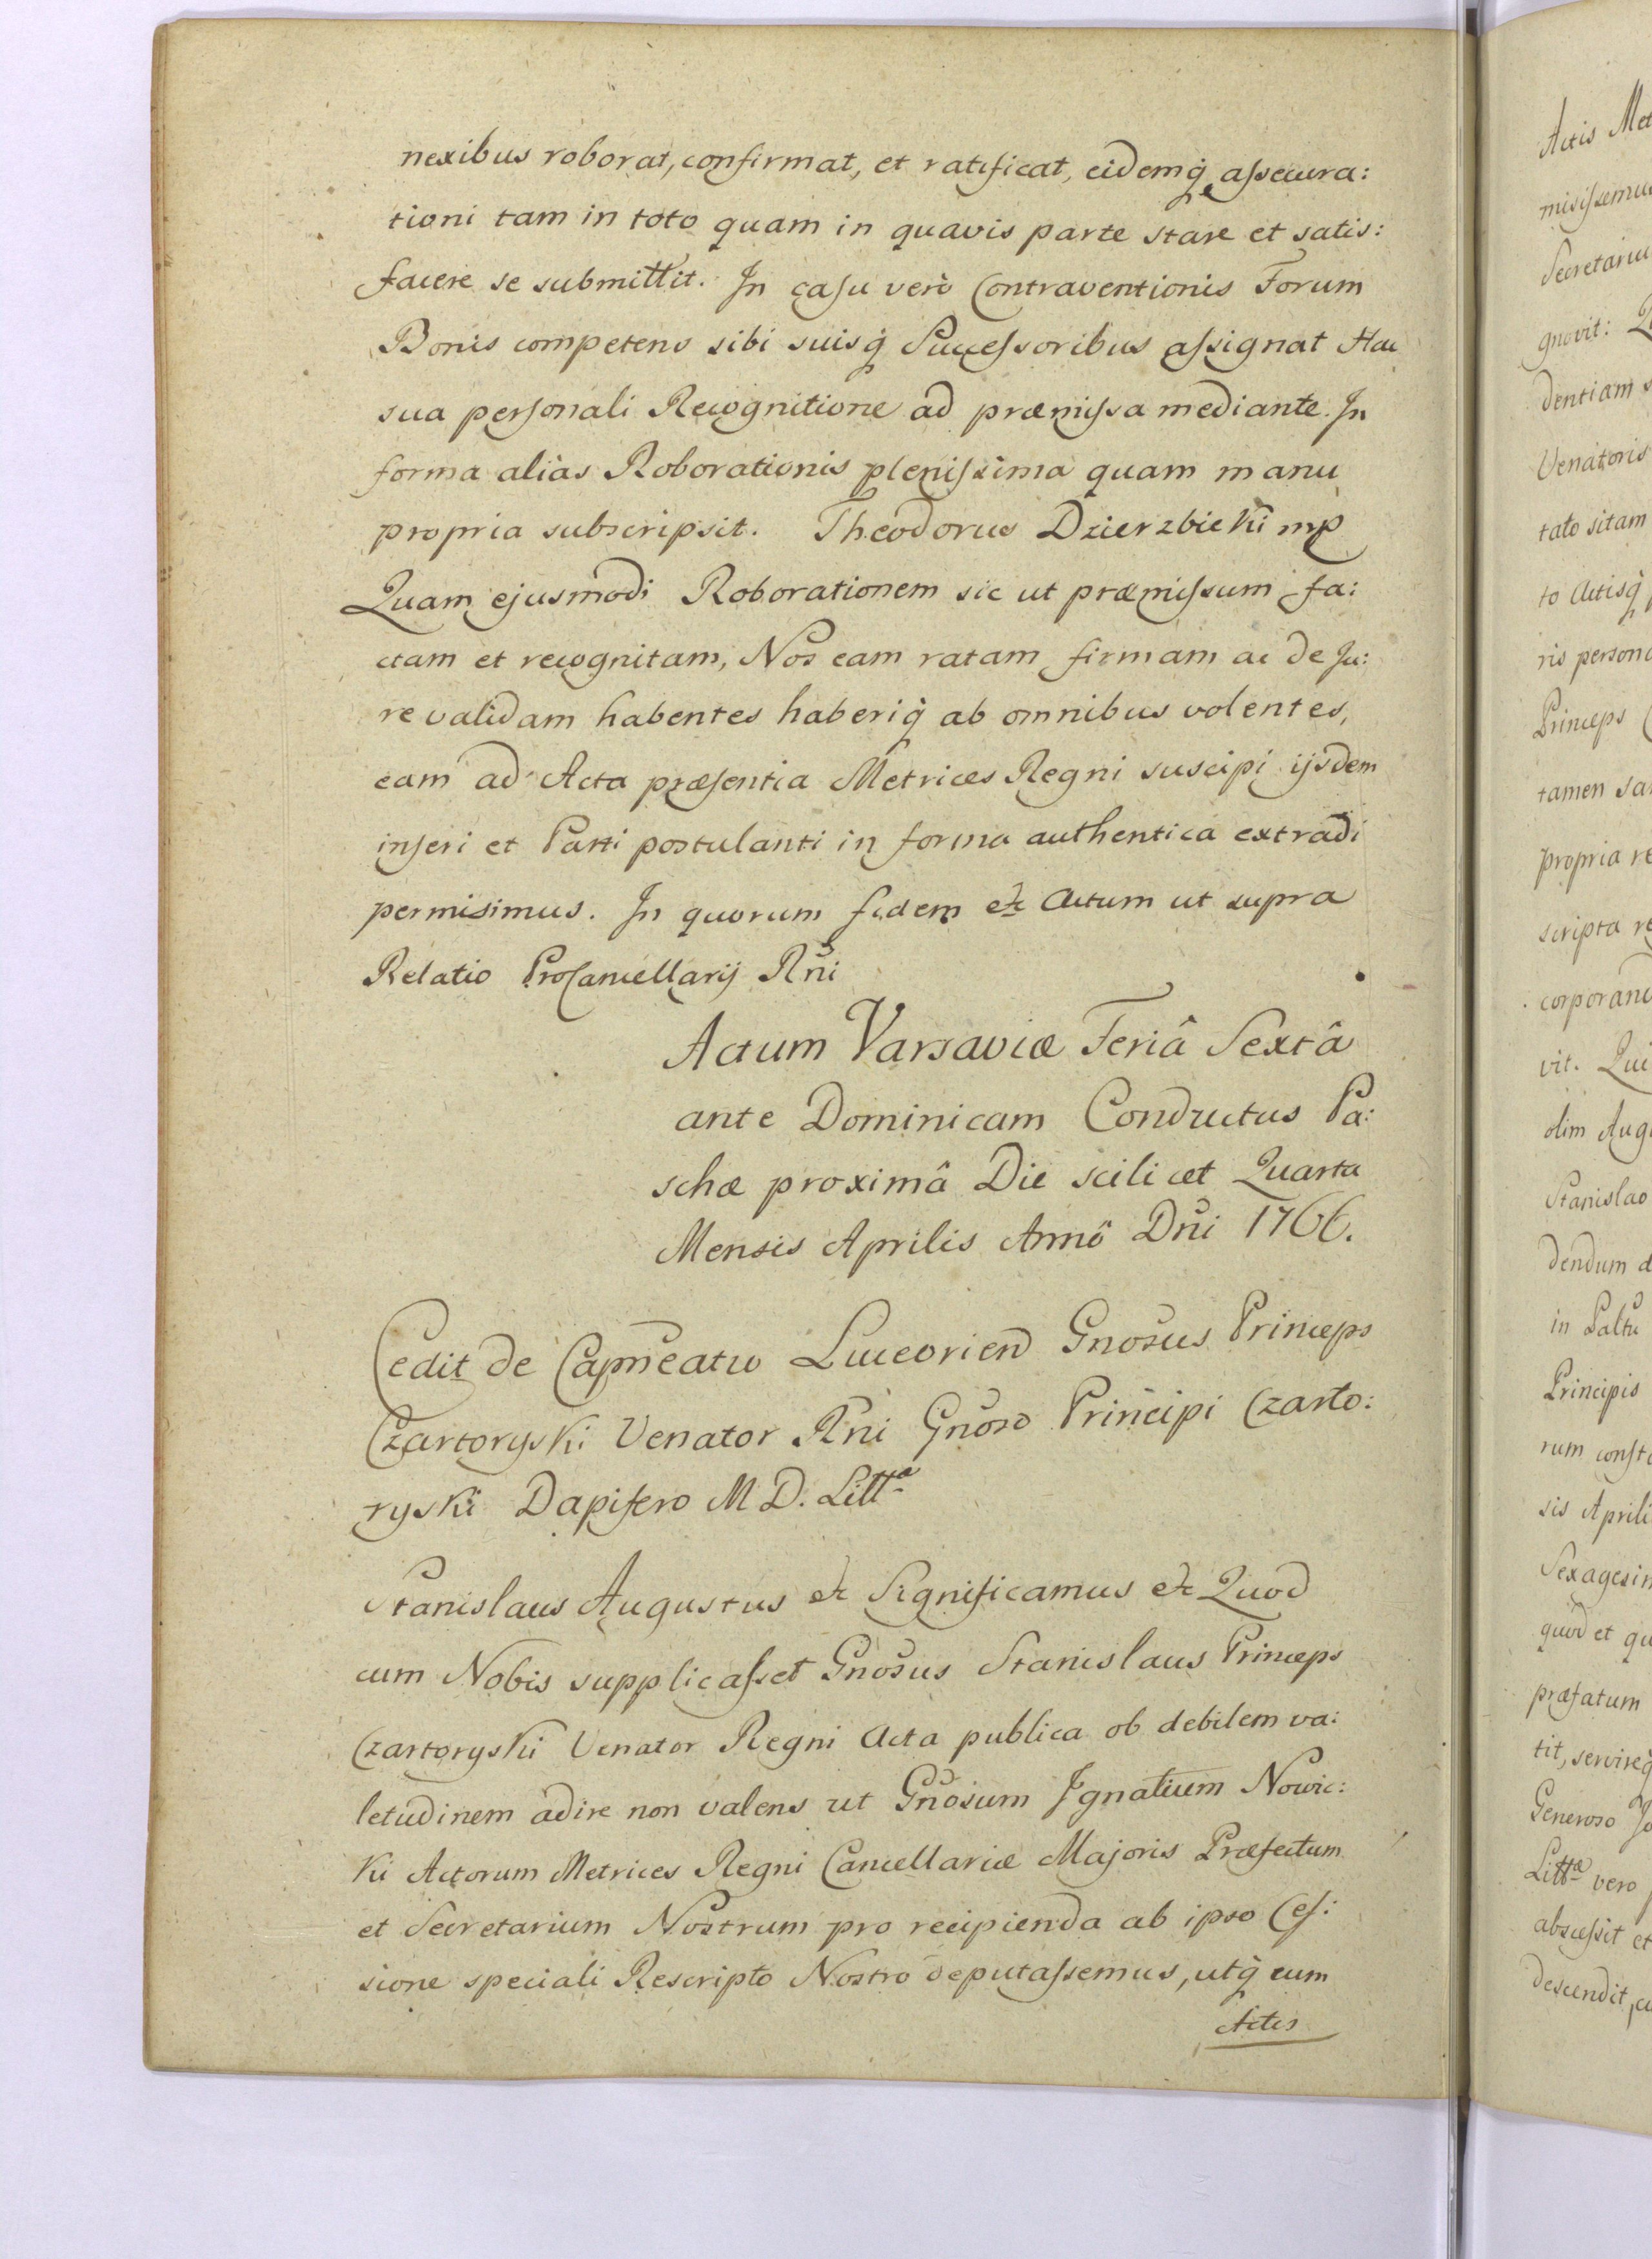 nexibus roborat, confirmat, et ratificat, eidemq̀ aſsecura:
tioni tam in toto quam in quavis parte stare et satis:
facere se submittit. In caſu verò Contraventionis Forum
Bonis competens sibi suisq̀ Succeſsoribus aſsignat Hac
sua perſonali Recognitione ad præmiſsa mediante. In
forma aliàs Roborationis pleniſsima quam manu
propria subscripsit. Theodorus Dzierzbicki mp
Quam ejusmodi Roborationem sic ut præmiſsum fa:
ctam et recognitam, Nos eam ratam firmam ac de Ju:
re validam habentes haberiq̀ ab omnibus volentes,
eam ad Acta præſentia Metrices Regni suscipi ijsdem
inſeri et Parti postulanti in forma authentica extradi
permisimus. In quorum fidem etc Actum ut supra
Relatio ProCancellarij Rñi
Actum Varsaviæ Feriâ Sextâ
ante Dominicam Conductus Pa:
schæ proximâ Die scilicet Quarta
Mensis Aprilis Annô Dñi 1766.
Cedit de Capñeatu Luceorien Gnosus Princeps
Czartoryski Venator Rñi Gnoso Principi Czarto:
ryski Dapifero M D. Littæ
Stanislaus Augustus etc Significamus etc Quod
cum Nobis supplicaſset Gnosus Stanislaus Princeps
Czartoryski Venator Regni Acta publica ob debilem va:
letudinem adire non valens ut Gnosum Ignatium Nowic:
ki Actorum Metrices Regni Cancellariæ Majoris Præfectum
et Secretarium Nostrum pro recipienda ab ipso Ceſ:
sione speciali Rescripto Nostro deputaſsemus, utq̀ cum
Actis
Actis Met
misiſsemus
Secretariu
gnovit: Q
dentiam s
Venatoris
tato sitam
to Actisq̀
ris persona
Princeps C
tamen sa
propria re
scripta re
corporand
vit. Qui
olim Aug
Stanislao
dendum d
in Paltu
Principis
rum conſt
sis Aprili
Sexagesim
quod et qu
præfatum
tit, servireq̀
Generoso Jo
Littæ vero
absceſsit et
descendit, cu